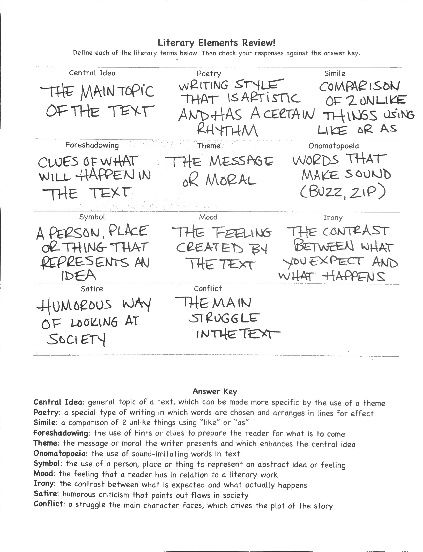 Literary Elements Review!
Define each of the literary terms below. Then check your responses against the answer key.
Central Idea
THE MAIN TOPIC
OF THE TEXT
Poetry
WRITING STYLE
THAT IS ARTISTIC
AND HAS A CERTAIN
RHYTHM
Simile
COMPARISON
OF 2 UNLIKE
THINGS USING
LIKE OR AS
Foreshadowing
CLUES OF WHAT
WILL HAPPEN IN
THE TEXT
Theme
THE MESSAGE
OR MORAL
Onomatopoeia
WORDS THAT
MAKE SOUND
(BUZZ, ZIP)
Symbol
A PERSON, PLACE
OR THING THAT
REPRESENTS AN
IDEA
Mood
THE FEELING
CREATED BY
THE TEXT
Irony
THE CONTRAST
BETWEEN WHAT
YOU EXPECT AND
WHAT HAPPENS
Satire
HUMOROUS WAY
OF LOOKING AT
SOCIETY
Conflict
THE MAIN
STRUGGLE
IN THE TEXT
Answer Key
Central Idea: general topic of a text, which can be made more specific by the use of a theme
Poetry: a special type of writing in which words are chosen and arranges in lines for effect
Simile: a comparison of 2 unlike things using "like" or "as"
Foreshadowing: the use of hints or clues to prepare the reader for what is to come
Theme: the message or moral the writer presents and which enhances the central idea
Onomatopoeia: the use of sound-imitating words in text
Symbol: the use of a person, place or thing to represent an abstract idea or feeling
Mood: the feeling that a reader has in relation to a literary work
Irony: the contrast between what is expected and what actually happens
Satire: humorous criticism that points out flaws in society
Conflict: a struggle the main character faces, which drives the plot of the story